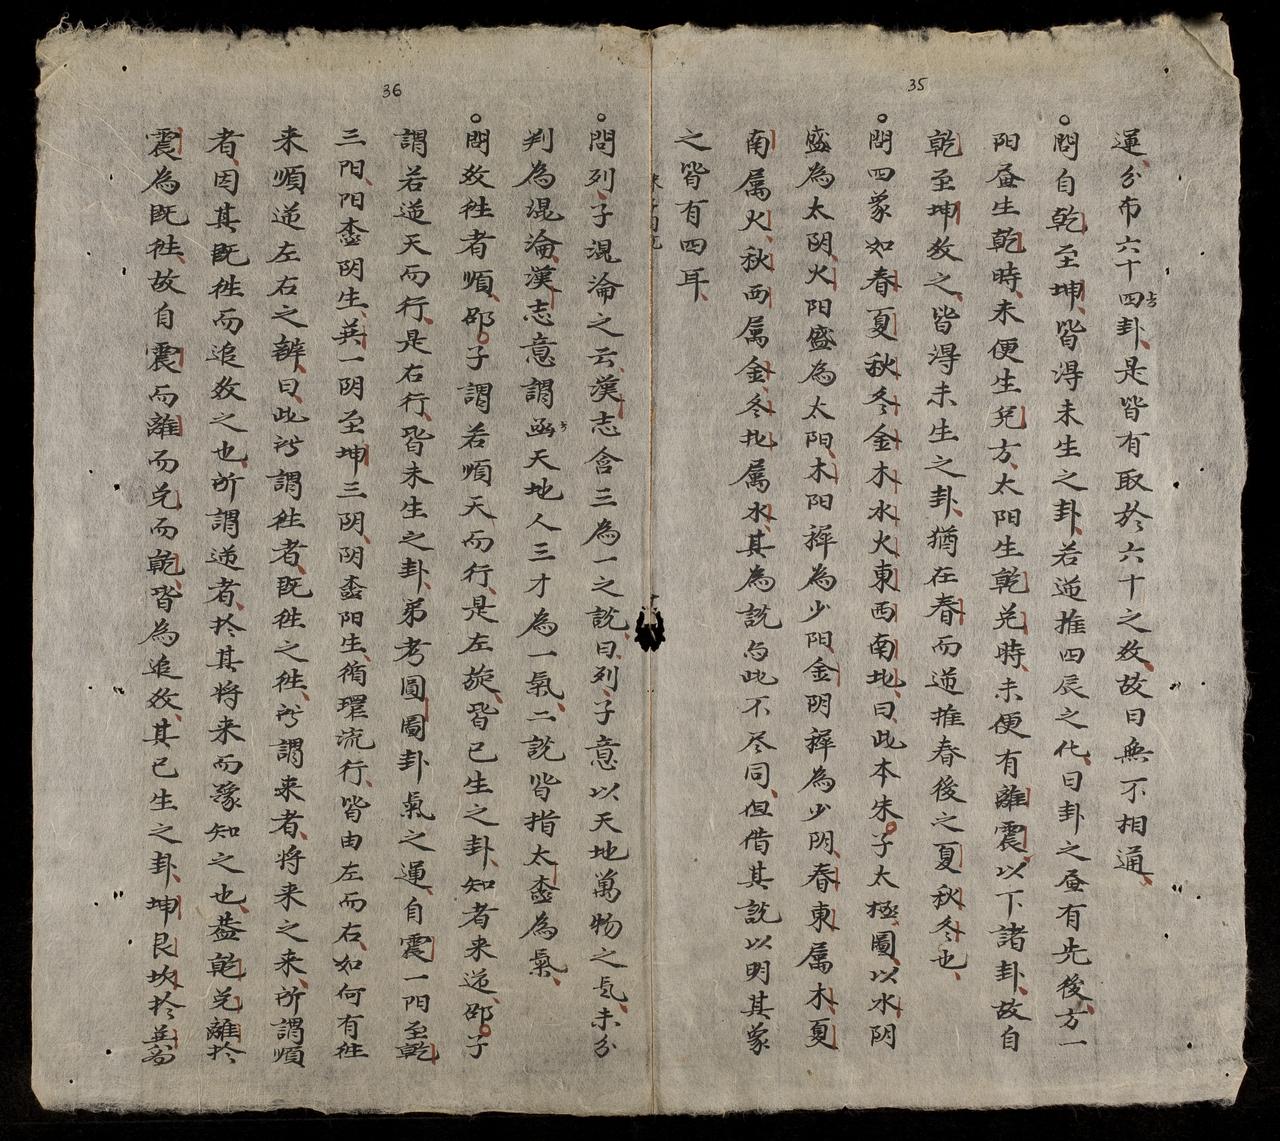 35
運分布六十四卦是皆有取於六十之效故曰無不相通
問自乾至坤皆得未生之卦若逆推四辰之化曰卦之𫝆有先後方一
阳𫝆生乾時未便生兌方太阳生乾兌時未便有離震以下諸卦故自
乾至坤效之皆得未生之卦猶在春而逆推春後之夏秋冬也
問四象如春夏秋冬金木水火東西南北曰此本朱子太極圖以水阴
盛為太阴火阳盛為太阳木阳穉為少阳金阴穉為少阴春東属木夏
南属火秋西属金冬北属水其為説与此不尽同但借其説以明其象
之皆有四耳
36
問列子混淪之云漢志含三為一之説曰列子意以天地萬物之气未分
判為混淪漢志意謂函天地人三才為一氣二説皆指太極為氣
問效徃者順邵子謂若順天而行是左旋皆已生之卦知者来逆邵子
謂若逆天而行是右行皆未生之卦弟考圓圖卦氣之運自震一阳至乾
三阳阳極阴生巽一阴至坤三阴阴極阳生循環流行皆由左而右如何有徃
来順逆左右之辨曰此所謂徃者既徃之徃所謂来者将来之来所謂順
者因其既徃而追效之也所謂逆者於其将来而豫知之也葢乾兌離於
震為既徃故自震而離而兌而乾皆為追效其已生之卦坤艮坎於巽為